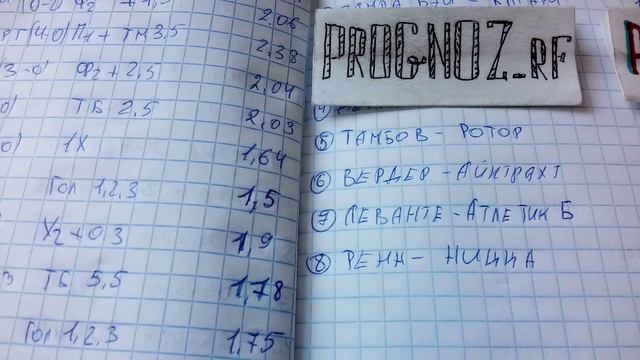 2,06
П1 + ТМ 3,5 2,38
Ф2 + 2,5 2,04
ТБ 2.5 2,03
1X 1,64
Гол 1,2,3 1,5
1,9
ТБ 5,5 1,78
Гол 1,2.3 1,75
PROGNOZ_RF
⑤ ТАМБОВ - РОТОР
⑥ ВЕРДЕР - АЙНТРАХТ
⑦ ЛЕВАНТЕ - АТЛЕТИК Б
⑧ РЕНН - НИЦЦА